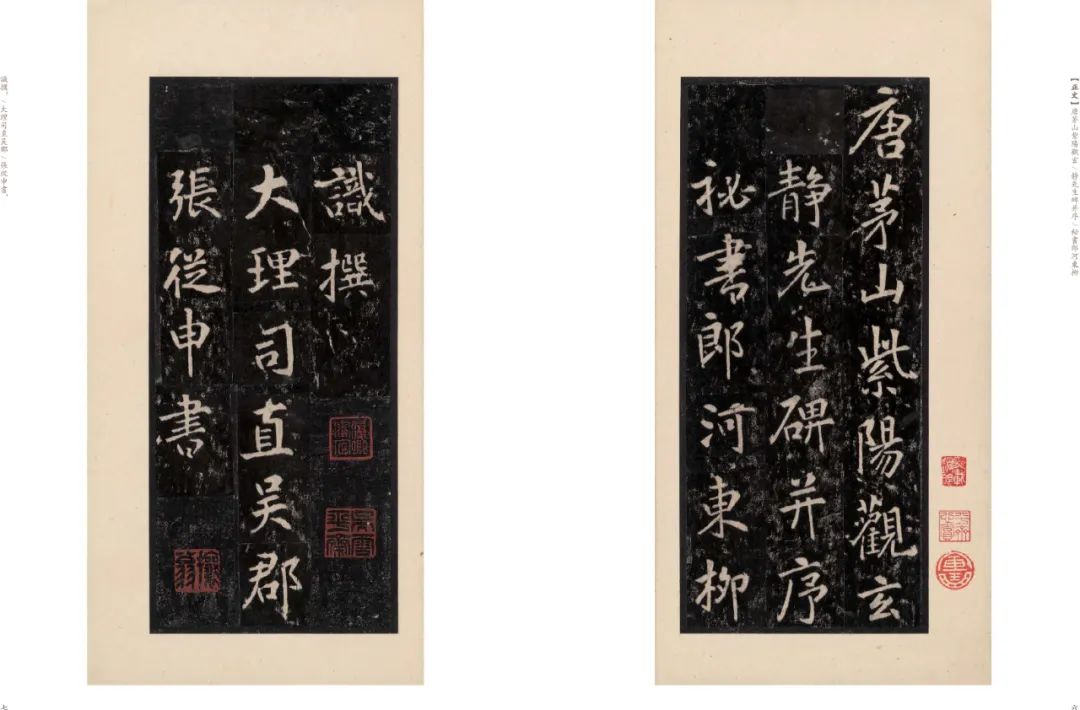 【正文】唐茅山紫陽觀玄\靜先生碑并序\秘書郎河東柳
唐茅山紫陽觀玄
靜先生碑并序
祕書郎河東柳
六
識撰
大理司直吴郡
張從申書
識撰。\大理司直吴郡\張從申書。
七